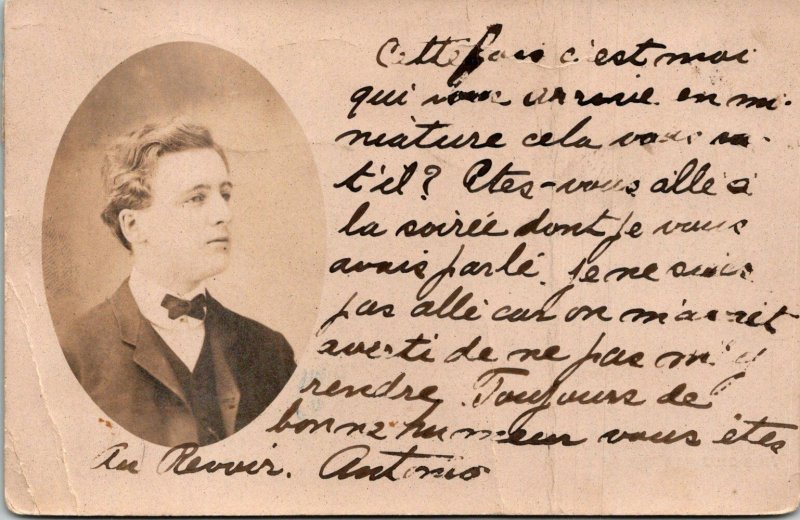 Cette fois c'est moi
qui vous arrive en mi-
niature cela vous va-
t'il? Etes-vous allé à
la soirée dont je vous
avais parlé, je ne suis
pas allé car on m'avait
averti de ne pas m'y
rendre. Toujours de
bonne humeur vous êtes
Au Revoir. Antonio